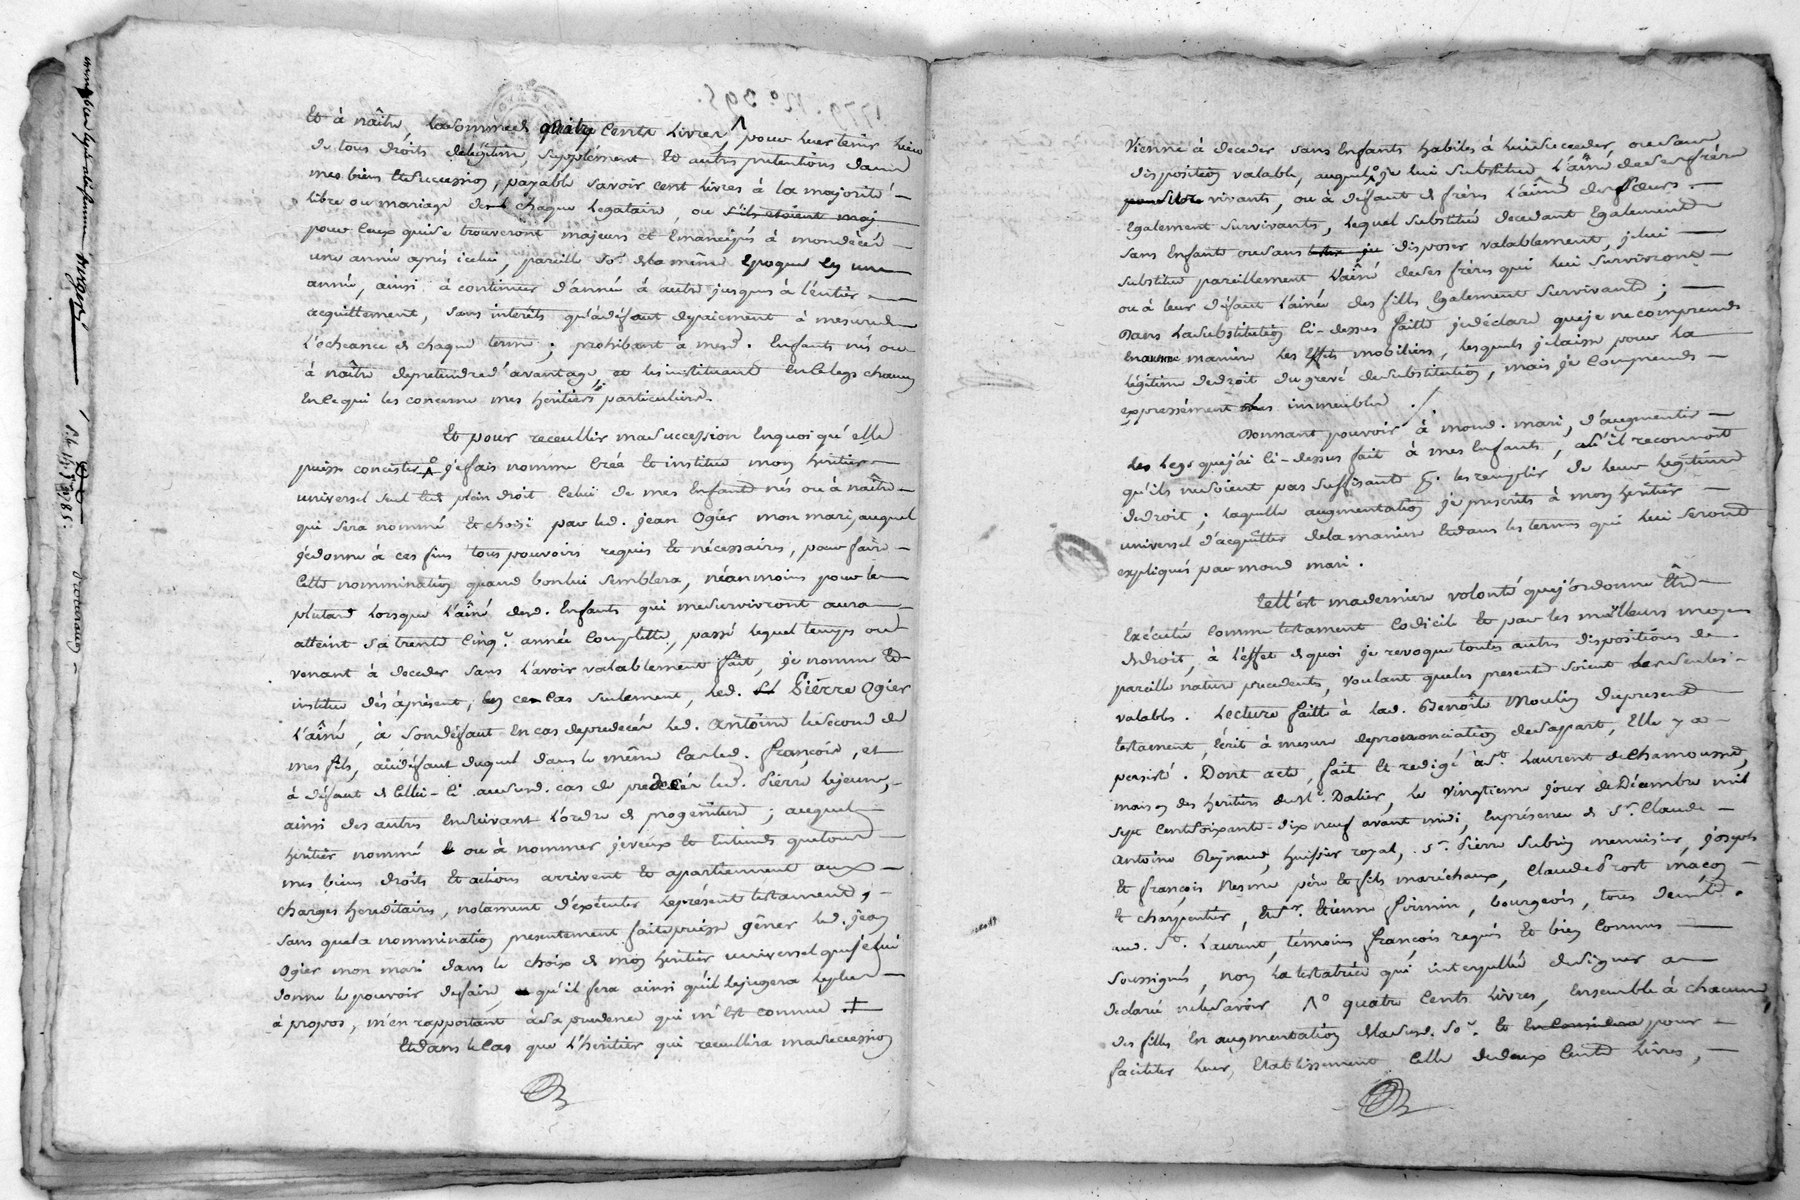 et à naître, la somme de quatre cents livres, pour leur tenir lieu
de tous droits de légitime, supplément et autres prétentions dans
mes biens et succession, payable savoir cent livres à la majorité
libre ou mariage de chaque legataire, ou s'ils etoient maj
pour ceux qui se trouveront majeurs et emancipés à mon décès
une année après icelui, pareille so.e de la même époque en une
année, ainsi à continuer d'année à autre jusques à l'entier
acquittement, sans intérêts qu'à défaut de paiement à mesure de
l'échéance de chaque terme; prohibant à mesd. enfants nés ou
à naître de prétendre d'avantage et les instituant en ce legs chacun
en ce qui les concerne mes héritiers particuliers.
Et pour receuillir ma succession en quoi qu'elle
puisse concister je fais nomme crée et institue mon héritier
universel seul de plein droit celui de mes enfants nés ou à naître
qui sera nommé et choisi par led. jean Ogier mon mari, auquel
je donne à ces fins tous pouvoirs requis et nécessaires, pour faire
cette nommination quand bon lui semblera, néanmoins pour le
plutard lorsque l'aîné desd. enfants qui me survivront aura
atteint sa trente cinq.e année complette, passé lequel temps ou
venant à deceder sans l'avoir valablement fait, je nomme et
institue dès à présent, en ce cas seulement, led. Pierre Ogier
l'aîné, à son défaut en cas de predecès led. Antoine le second de
mes fils, au défaut duquel dans le même cas led. françois, et
à défaut de cellui-ci au susd. cas de predecès led. Pierre lejeune,
ainsi des autres en suivant l'ordre de progéniture; auquel
héritier nommé ou à nommer je veux et entends que tous
mes biens droits et actions arrivent et apartiennent aux
charges hereditaires, notament d'exécuter le présent testament,
sans que la nommination presentement faite puisse gêner led. jean
Ogier mon mari dans le choix de mon héritier universel que je lui
donne le pouvoir de faire, qu'il fera ainsi qu'il le jugera le plus
à propos, m'en rapportant à sa prudence qui m'est connue
Et dans le cas que l'héritier qui receuillira ma succession
Vienne à deceder sans enfants habiles à lui succeder, ou sans
disposition valable, auquel je lui substitue l'aîné de ses frères
vivants, ou à défaut de frères l'aînée des soeurs
egalement survivants, lequel substitué decedant egalement
sans enfants ou sans disposer valablement, je lui
substitue pareillement l'aîné de ses frères qui lui survivront
ou à leur défaut l'ainée des filles egalement survivante;
Dans la substitution ci-dessus faitte je déclare que je ne comprends
en aucune maniere les effets mobiliers, lesquels je laisse pour la
légitime de droit du grevé de substitution, mais je comprends
expressément les immeubles.
Donnant pouvoir à mond. mari, d'augmenter
les legs que j'ai ci-dessus fait à mes enfants, s'il reconnoit
qu'ils ne soient pas suffisants p.r les remplir de leur légitime
de droit; laquelle augmentation je prescrits à mon héritier
universel d'acquitter de la maniere et dans les termes qui lui seront
expliqués par mond mari.
Tell'est ma derniere volonté que j'ordonne être
exécutée comme testament codicile et par les meilleurs moyens
de droit, à l'effet de quoi je revoque toutes autres dispositions de
pareille nature precedents, voulant que les presentes soient les seules
valables. Lecture faitte à lad. Benoîte Moulin du present
testament, écrit à mesure de prononciation de sa part, elle y a
persisté. Dont acte, fait et redigé à S.t Laurent de Chamousset,
maison des héritiers du Sr. Dalier, le vingtieme jour de Décembre mil
sept cent soixante-dix neuf avant midi, en présence de S.r Claude
Antoine Reynaud, huissier royal, S.r Pierre Subrin menuisier, joseph
et françois Nesme père et fils maréchaux, Claude Prost maçon
et charpentier, et S.r Etienne firmin, bourgeois, tous demt.s
aud. St. Laurent, témoins françois requis et bien connus
soussignés, non la testatrice qui interpellée de signer a
declaré ne le savoir quatre cents livres, ensemble à chacune
des filles en augmentation de la susd. so.e et en considera pour
faciliter leur établissement celle de deux cents livres,